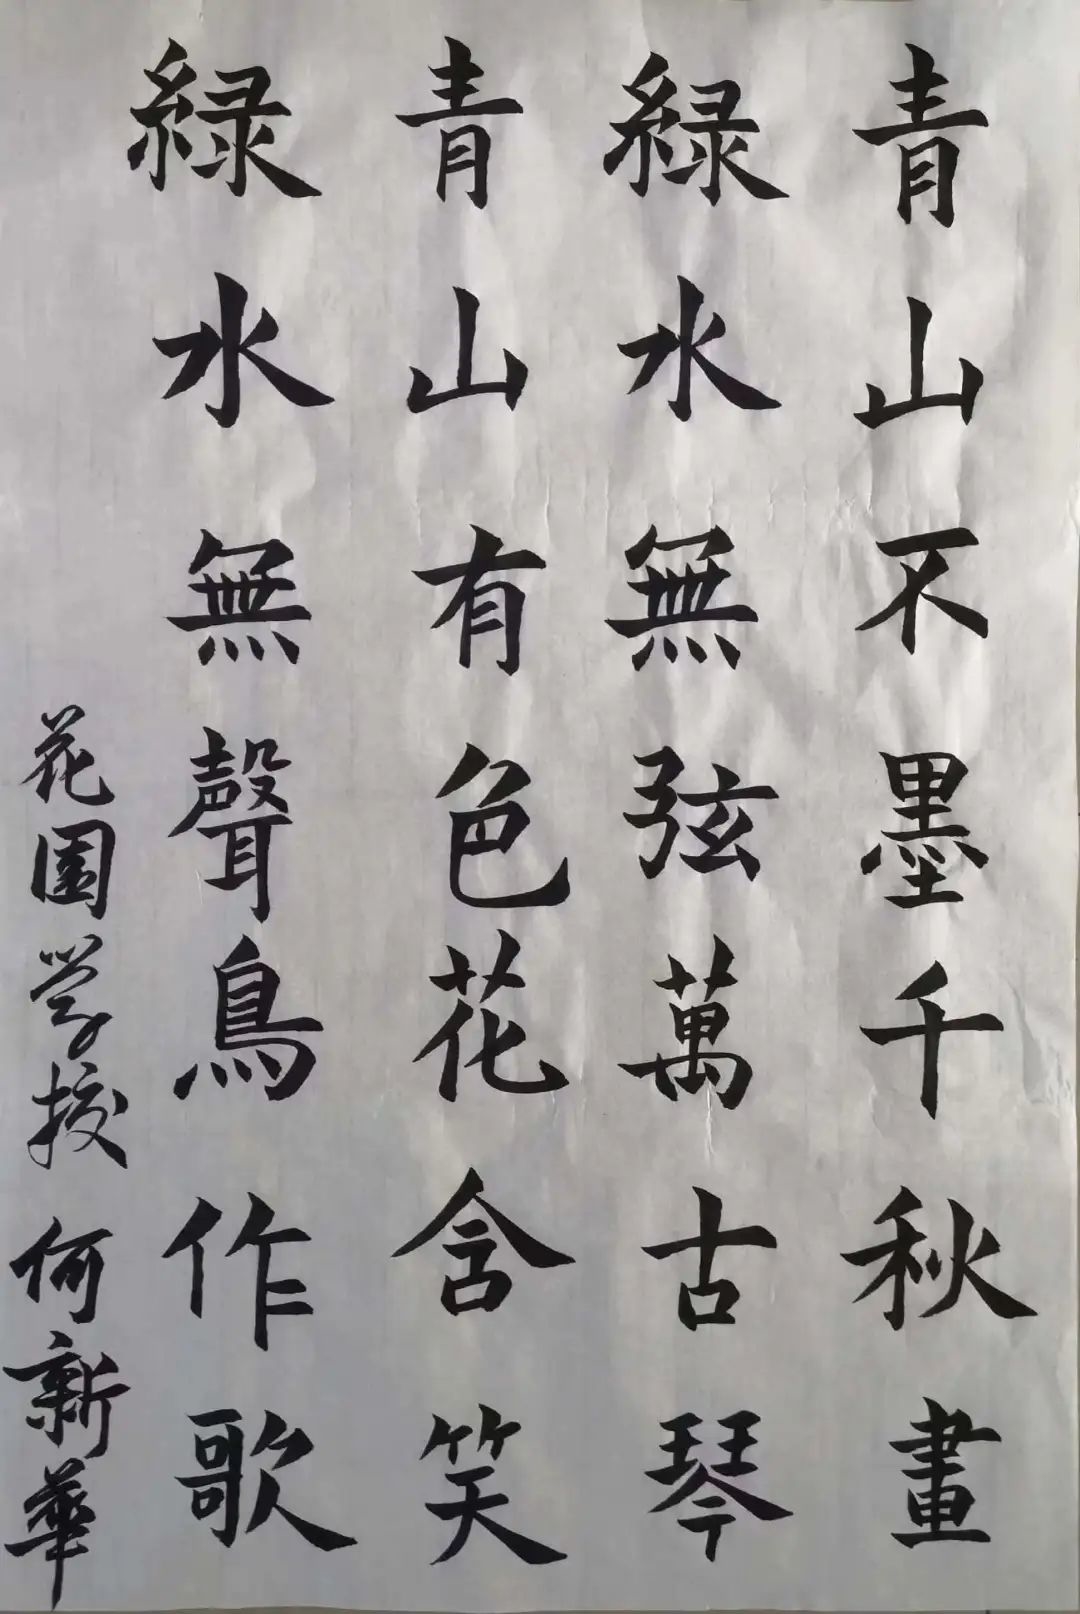 青山不墨千秋畫
緑水無弦萬古琴
青山有色花含笑
緑水無聲鳥作歌
花園学校 何新華